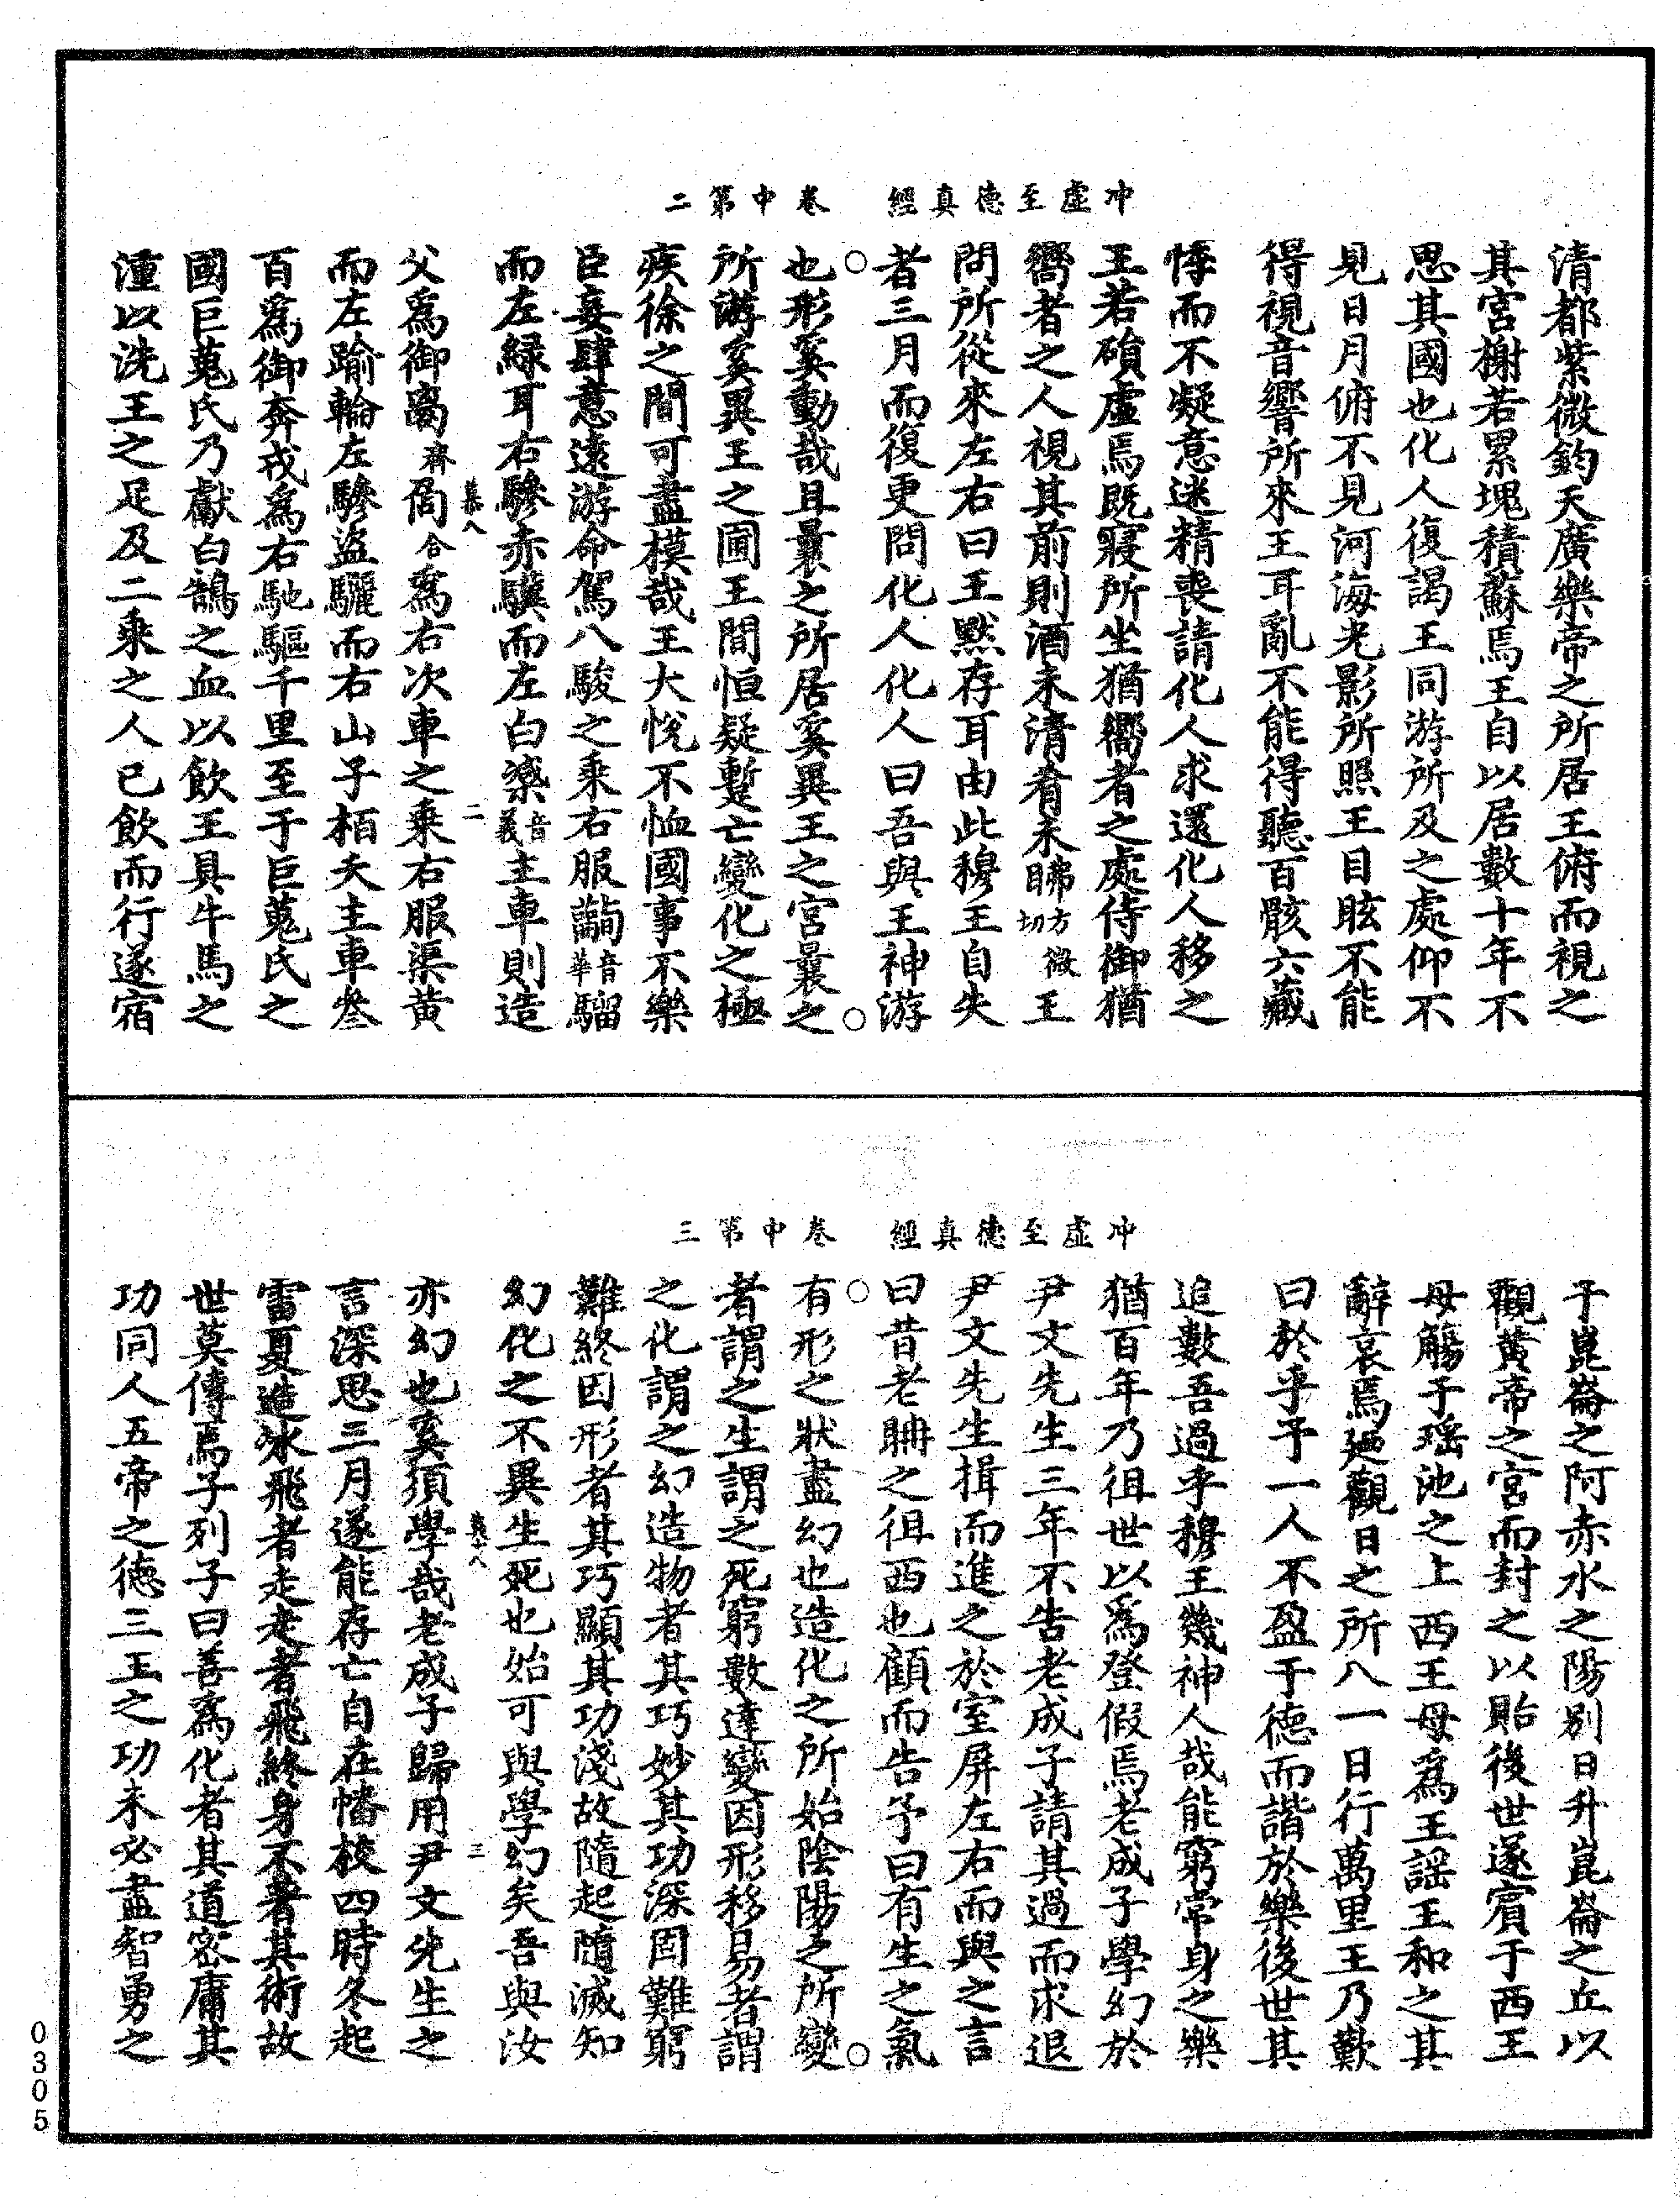 冲虛至德真經　卷中第二
清都紫微鈞天廣樂帝之所居王俯而視之
其宮榭若累塊積蘇焉王自以居數十年不
思其國也化人復謁王同游所及之處仰不
見日月俯不見河海光影所照王目眩不能
得視音響所來王耳亂不能得聽百骸六藏
悸而不凝意迷精喪請化人求還化人移之
王若磒虛焉既寤所坐猶嚮者之處侍御猶
嚮者之人視其前則酒未清肴未昲方微切王
問所從來左右曰王默存耳由此穆王自失
者三月而復更問化人化人曰吾與王神游
也形奚動哉且曩之所居奚異王之宮曩之
所游奚異王之圃王間恒疑蹔亡變化之極
疾徐之間可盡模哉王大悅不恤國事不樂
臣妾肆意遠游命駕八駿之乘右服𦽊音華騮
而左綠耳右驂赤驥而左白𣚘音義主車則造
父爲御𧮼齊𠱷合爲右次車之乘右服渠黃
而左踰輪左驂盜驪而右山子柏夭主車參
百爲御奔戎爲右馳驅千里至于巨蒐氏之
國巨蒐氏乃獻白鵠之血以飲王具牛馬之
湩以洗王之足及二乘之人已飲而行遂宿
冲虛至德真經　卷中第三
于崑崙之阿赤水之陽別日升崑崙之丘以
觀黃帝之宮而封之以貽後世遂賓于西王
母觴于瑤池之上西王母爲王謠王和之其
辭哀焉迺觀日之所入一日行萬里王乃歎
曰於乎予一人不盈于德而諧於樂後世其
追數吾過乎穆王幾神人哉能窮當身之樂
猶百年乃徂世以爲登假焉老成子學幻於
尹文先生三年不告老成子請其過而求退
尹文先生揖而進之於室屏左右而與之言
曰昔老聃之徂西也顧而告予曰有生之氣
有形之狀盡幻也造化之所始陰陽之所變
者謂之生謂之死窮數達變因形移易者謂
之化謂之幻造物者其巧妙其功深固難窮
難終因形者其巧顯其功淺故隨起隨滅知
幻化之不異生死也始可與學幻矣吾與汝
亦幻也奚須學哉老成子歸用尹文先生之
言深思三月遂能存亡自在幡校四時冬起
雷夏造冰飛者走走者飛終身不著其術故
世莫傳焉子列子曰善爲化者其道密庸其
功同人五帝之德三王之功未必盡智勇之
0305